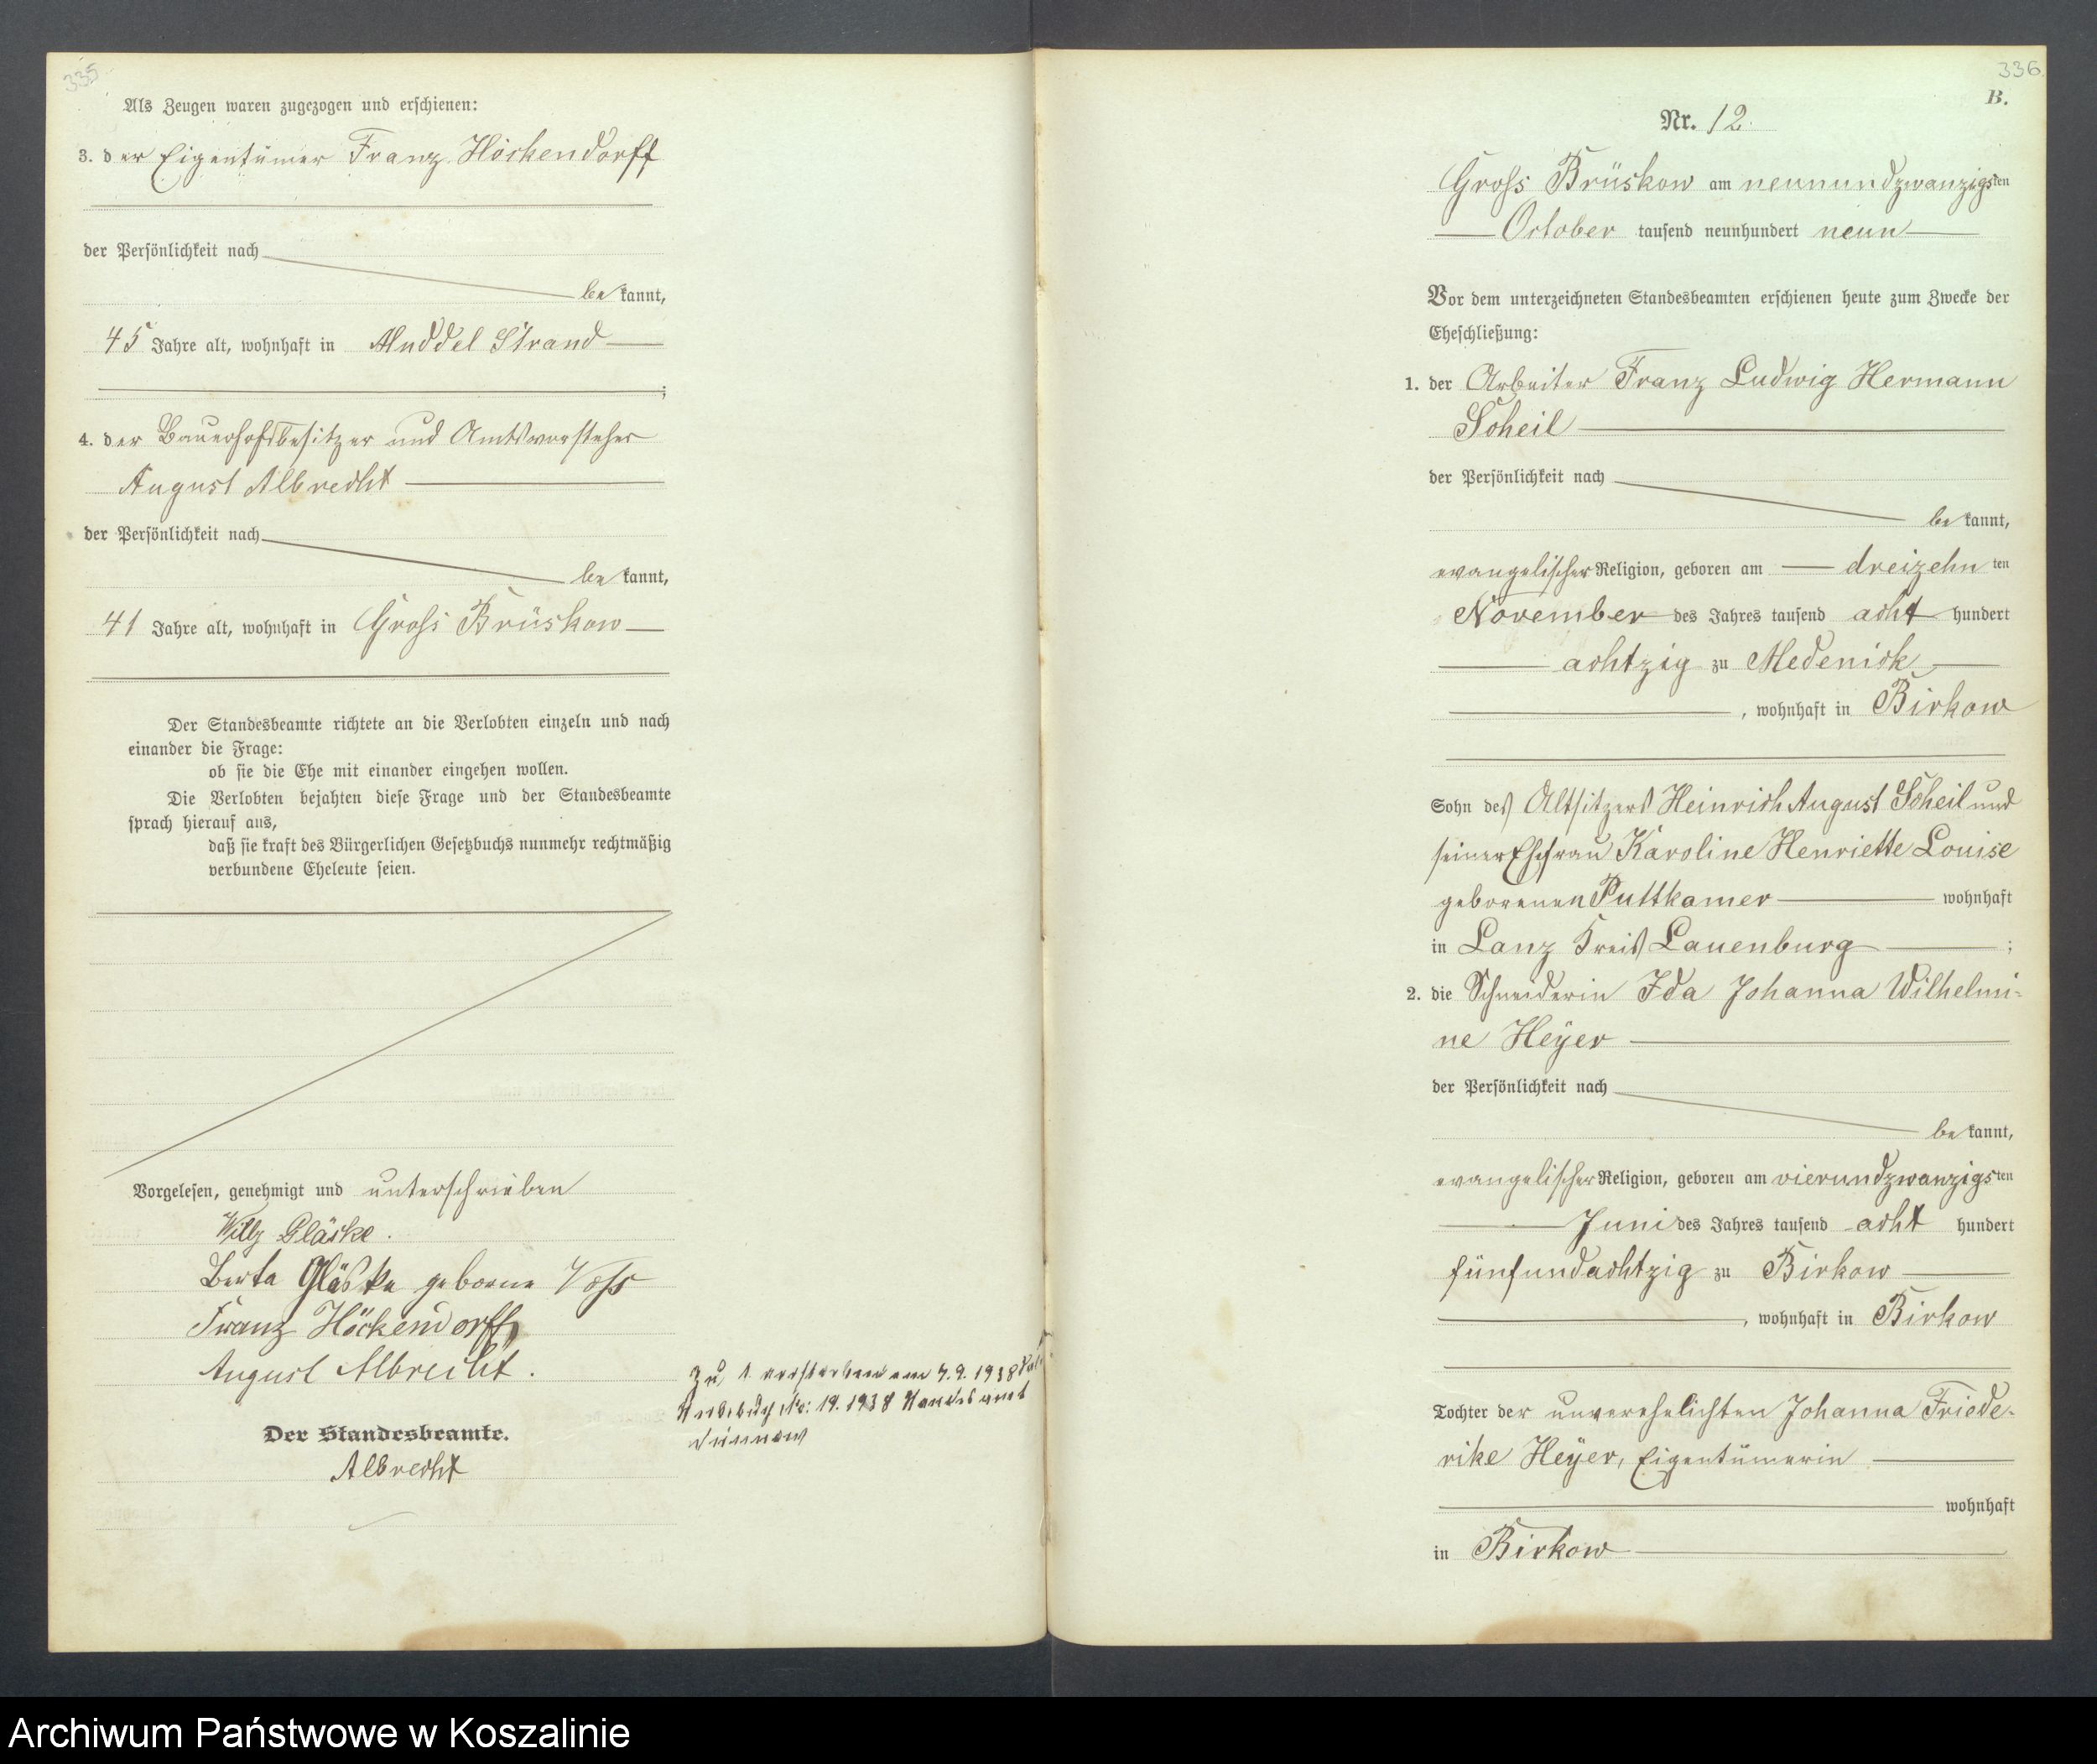 335
Als Zeugen waren zugezogen und erschienen:
3. der Eigentümer Franz Höckendorff
der Persönlichkeit nach
bekannt,
45 Jahre alt, wohnhaft in Muddel Strand
;
4. der Bauerhofsbesitzer und Amtsvorsteher
August Albrecht
der Persönlichkeit nach
bekannt,
41 Jahre alt, wohnhaft in Gross Brüskow
Der Standesbeamte richtete an die Verlobten einzeln und nach
einander die Frage:
ob sie die Ehe mit einander eingehen wollen.
Die Verlobten bejahten diese Frage und der Standesbeamte
sprach hierauf aus,
daß sie kraft des Bürgerlichen Gesetzbuchs nunmehr rechtmäßig
verbundene Eheleute seien.
Vorgelesen, genehmigt und unterschrieben
Willy Gläske.
Berta Gläske geborne Voss
Franz Höckendorff
August Albrecht.
Der Standesbeamte.
Albrecht
Zu 1 verstorben am 7.9.1938
Sterbebuch Nr: 19.1938 Standesamt
336
B.
Nr. 12.
Gross Brüskow am neunundzwanzigsten
October tausend neunhundert neun
Vor dem unterzeichneten Standesbeamten erschienen heute zum Zwecke der
Eheschließung:
1. der Arbeiter Franz Ludwig Hermann
Scheil
der Persönlichkeit nach
bekannt,
evangelischer Religion, geboren am dreizehnten
November des Jahres tausend achthundert
achtzig zu Medenick
, wohnhaft in Birkow
Sohn des Altsitzers Heinrich August Scheil und
seiner Ehefrau Karoline Henriette Louise
geborenen Puttkamer wohnhaft
in Lanz Kreis Lauenburg ;
2. die Schneiderin Ida Johanna Wilhelmi-
ne Heyer
der Persönlichkeit nach
bekannt,
evangelischer Religion, geboren am vierundzwanzigsten
Juni des Jahres tausend acht hundert
fünfundachtzig zu Birkow
, wohnhaft in Birkow
Tochter der unverehelichten Johanna Friede-
rike Heyer, Eigentümerin
wohnhaft
in Birkow
Archiwum Państwowe w Koszalinie